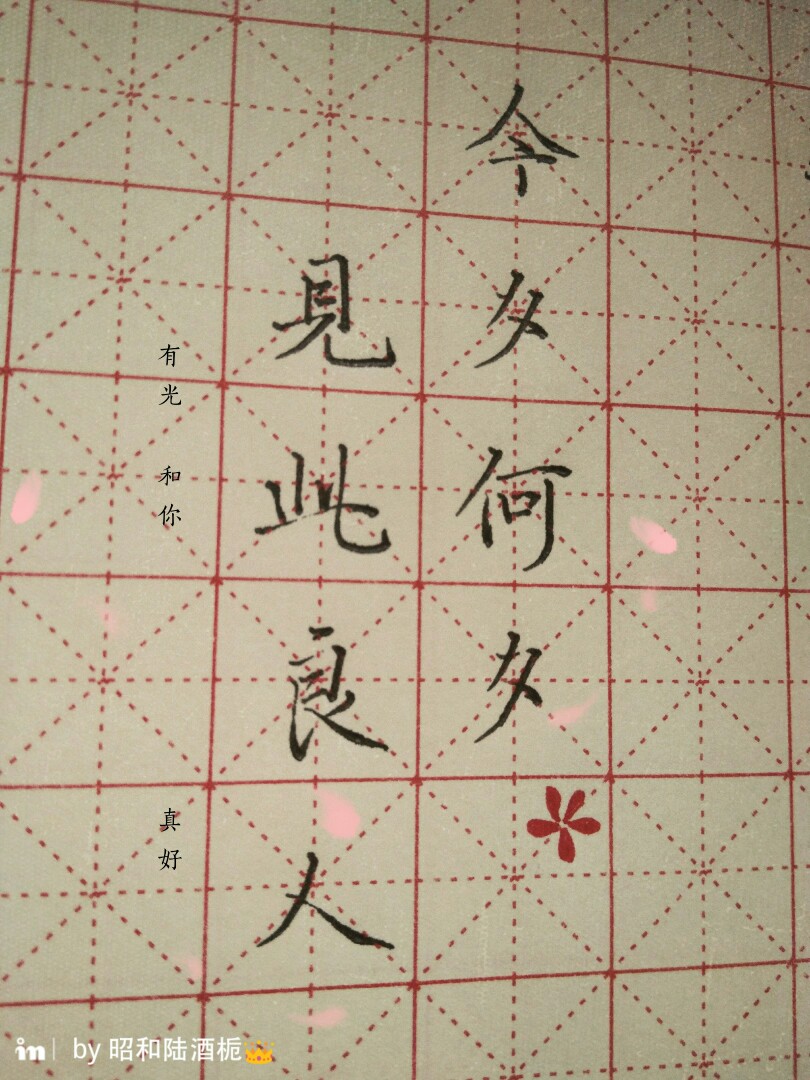 今夕何夕
見此良人
有光 和你 真好
in | by 昭和陆酒栀